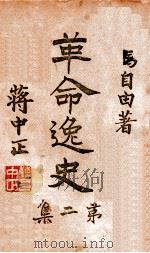 馮自由著
革命逸史
第二集
蔣中正
www.mtoou.info